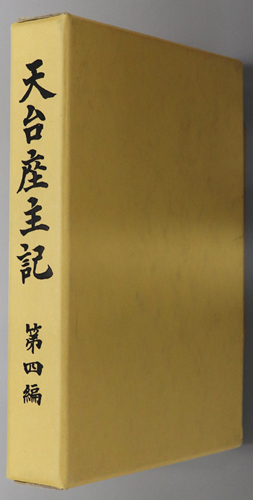 天台座主記
第四編